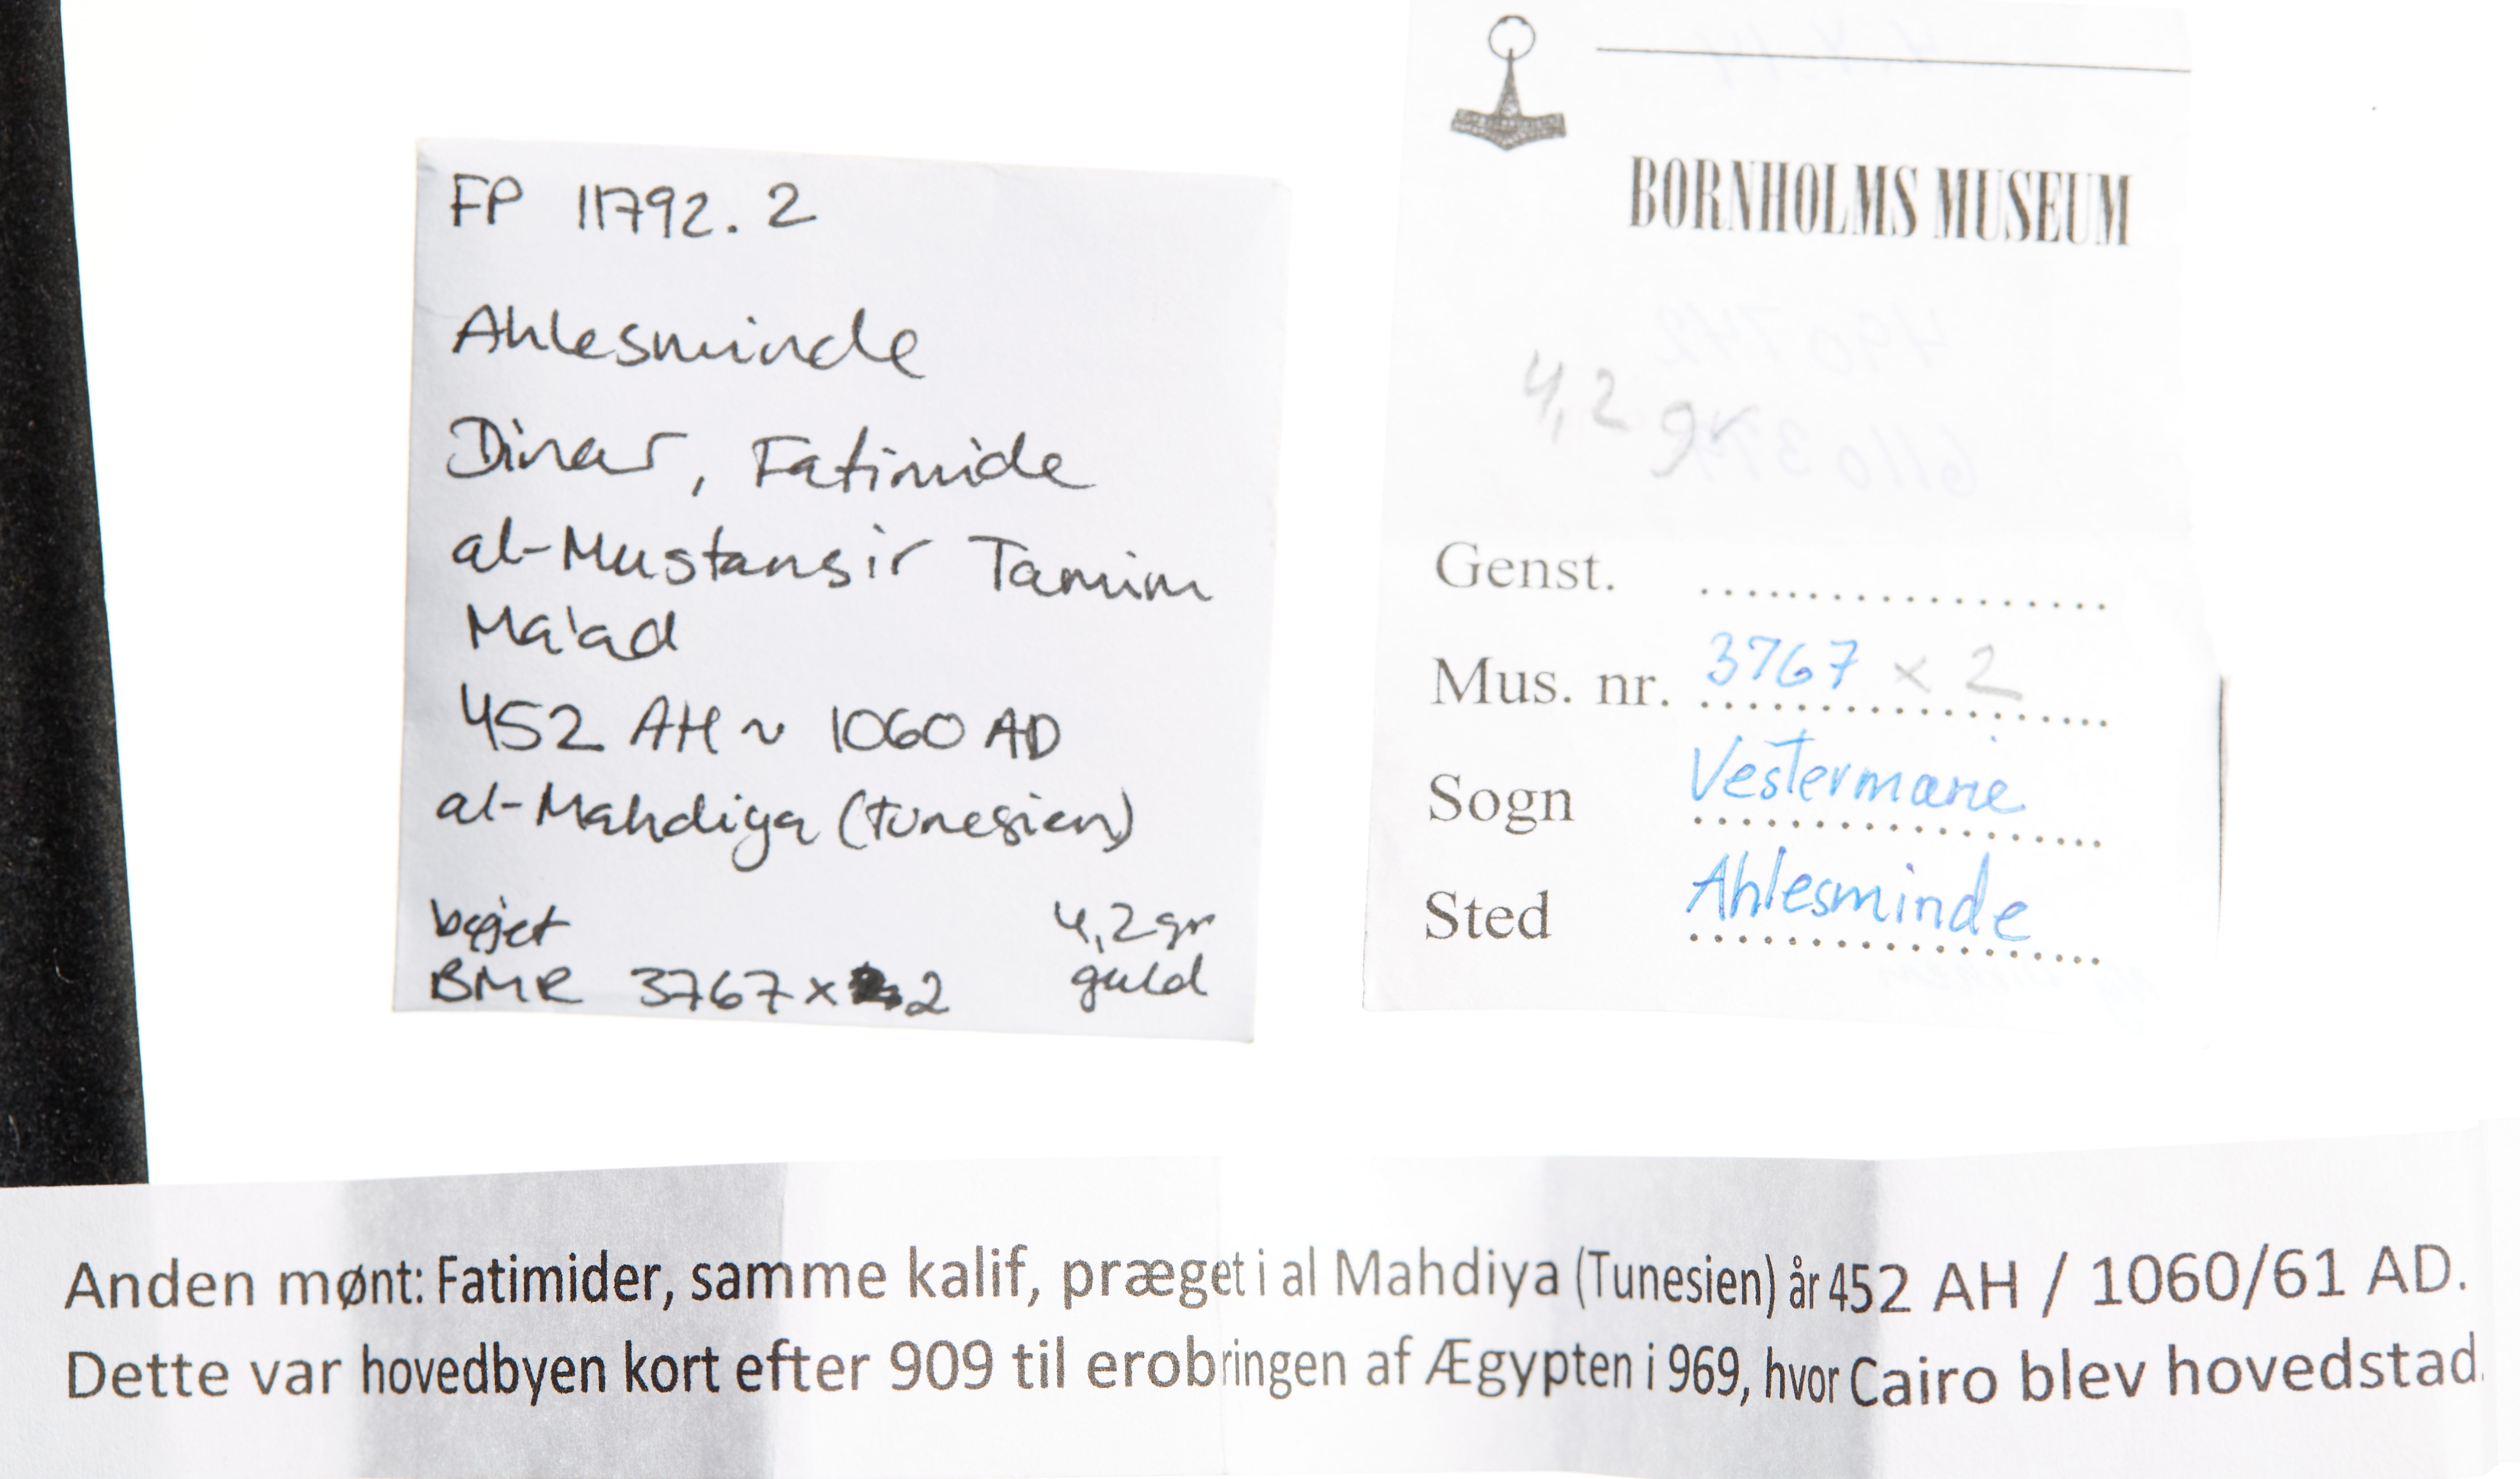 FP 11792.2
Ahlesminde
Dinar, Fatimide
al-Mustansir Tamim
Ma'ad
452 AH ~ 1060 AD
al-Mahdiya (Tunesien)
bøjet 4,2 gr
BMR 3767 x 2 guld
BORNHOLMS MUSEUM
4,2 gr
Genst. ..................
Mus. nr. 3767 x 2
Sogn Vestermarie
Sted Ahlesminde
Anden mønt: Fatimider, samme kalif, præget i al Mahdiya (Tunesien) år 452 AH / 1060/61 AD.
Dette var hovedbyen kort efter 909 til erobringen af Ægypten i 969, hvor Cairo blev hovedstad.